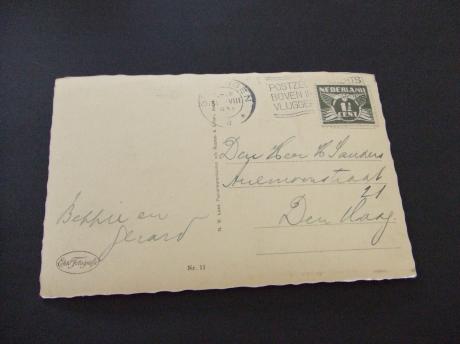 POSTZE
BOVEN
VLUGGE
NEDERLAND
1½
CENT
Den Heer H Sanders
Anemoonstraat
21
Den Haag.
Beppie en
Gerard
Echte Fotografie
Nr. 11